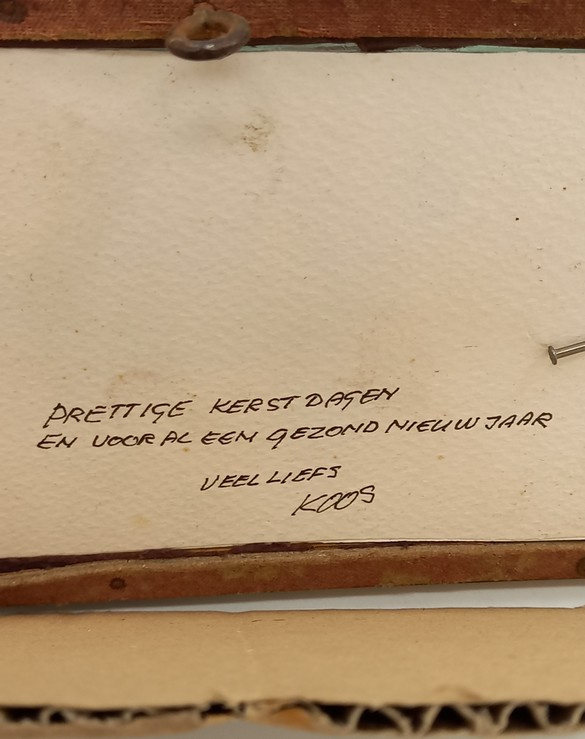 PRETTIGE KERSTDAGEN
EN VOORAL EEN GEZOND NIEUWJAAR
VEEL LIEFS
KOOS